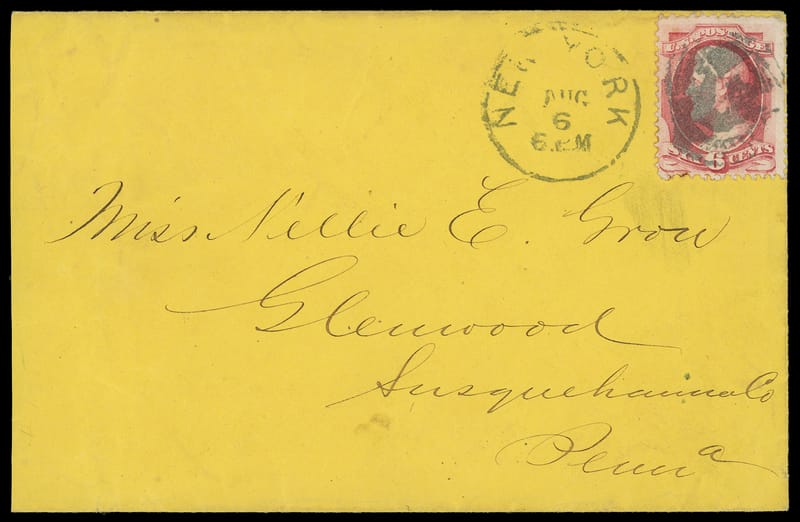 NEW YORK
AUG
6
6 PM
U.S. POSTAGE
SIX 6 CENTS
Miss. Nellie E. Grow
Glenwood
Susquehanna Co
Penna